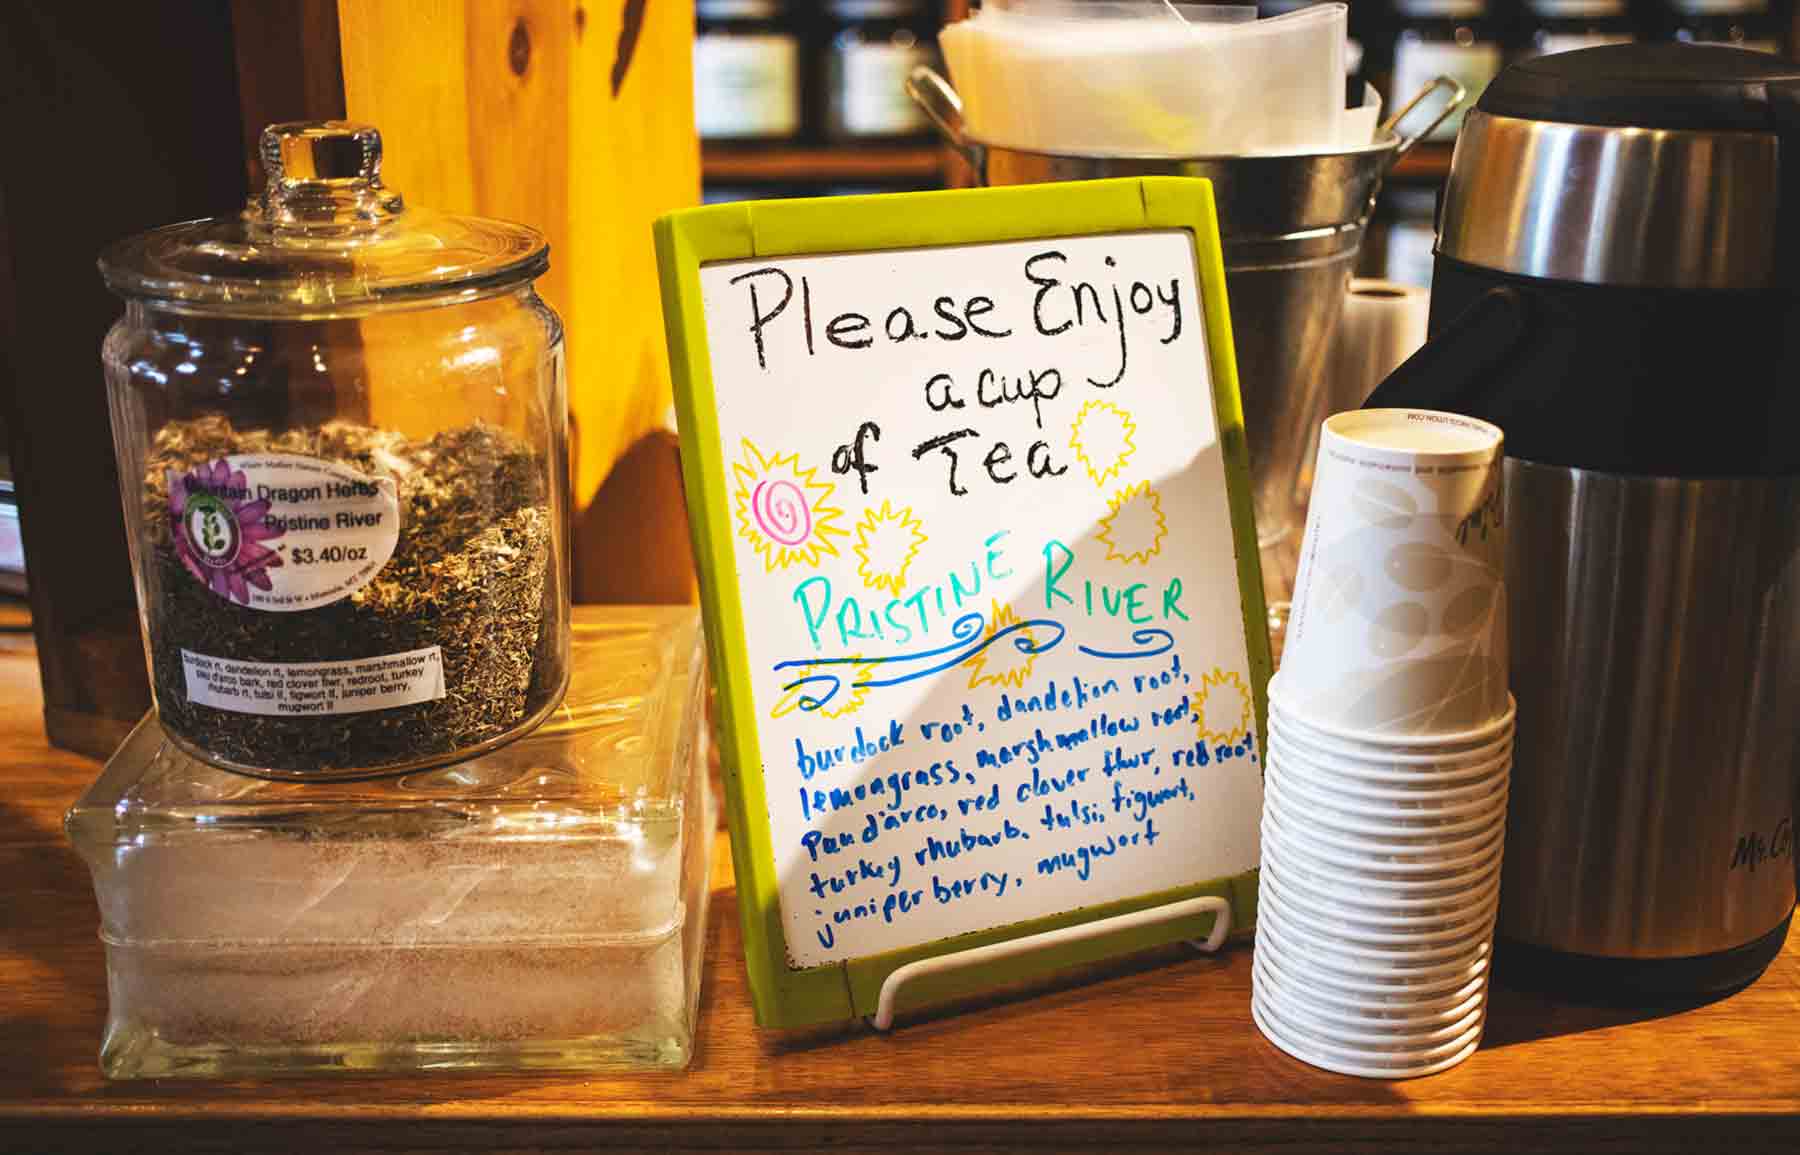 Mountain Dragon Herbs
Pristine River
$3.40/oz
burdock rt, dandelion rt, lemongrass, marshmallow rt,
pau d'arco bark, red clover flwr, redroot, turkey
rhubarb rt, tulsi lf, figwort lf, juniper berry,
mugwort lf
Please Enjoy
a cup
of Tea
PRISTINE RIVER
burdock root, dandelion root,
lemongrass, marshmallow root,
Pau d'arco, red clover flwr, red root,
turkey rhubarb, tulsi, figwort,
juniper berry, mugwort
Mr. Co